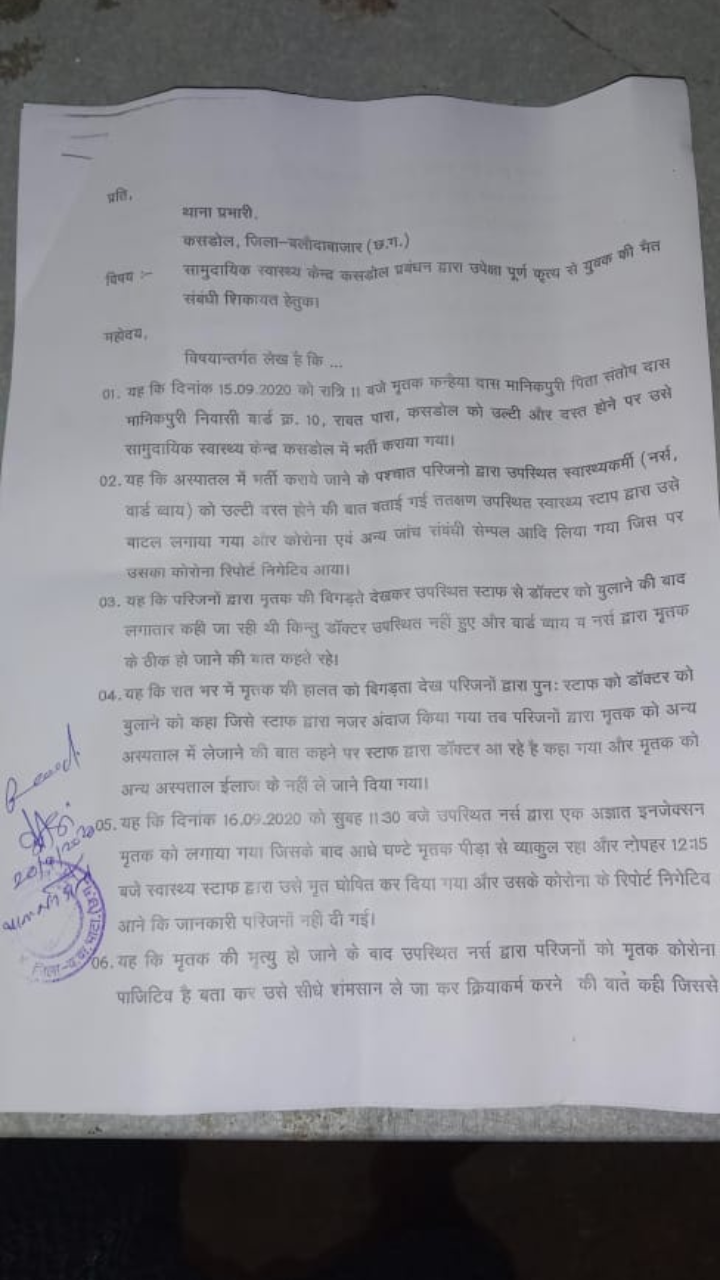 प्रति,
थाना प्रभारी.
कसडोल, जिला–बलौदाबाजार (छ.ग.)
विषय :– सामुदायिक स्वास्थ्य केन्द्र कसडोल प्रबंधन द्वारा उपेक्षा पूर्ण कृत्य से युवक की मैत
संबंधी शिकायत हेतुक।
महोदय,
विषयान्तर्गत लेख है कि ...
01. यह कि दिनांक 15.09.2020 को रात्रि 11 बजे मृतक कन्हैया दास मानिकपुरी पिता संतोष दास
मानिकपुरी निवासी वार्ड क्र. 10, रावत पारा, कसडोल को उल्टी और दस्त होने पर उसे
सामुदायिक स्वास्थ्य केन्द्र कसडोल में भर्ती कराया गया।
02. यह कि अस्पातल में भर्ती कराये जाने के पश्चात परिजनो द्वारा उपस्थित स्वास्थ्यकर्मी (नर्स,
वार्ड ब्वाय) को उल्टी दस्त होने की बात बताई गई ततक्षण उपस्थित स्वास्थ्य स्टाप द्वारा उसे
बाटल लगाया गया और कोरोना एवं अन्य जांच संबंधी सेम्पल आदि लिया गया जिस पर
उसका कोरोना रिपोर्ट निगेटिव आया।
03. यह कि परिजनों द्वारा मृतक की बिगड़ते देखकर उपस्थित स्टाफ से डॉक्टर को बुलाने की बाद
लगातार कही जा रही थी किन्तु डॉक्टर उपस्थित नही हुए और वार्ड ब्याय व नर्स द्वारा मृतक
के ठीक हो जाने की बात कहते रहे।
04. यह कि रात भर में मृतक की हालत को बिगड़ता देख परिजनों द्वारा पुनः स्टाफ को डॉक्टर को
बुलाने को कहा जिसे स्टाफ द्वारा नजर अंदाज किया गया तब परिजनों द्वारा मृतक को अन्य
अस्पताल में लेजाने की बात कहने पर स्टाफ द्वारा डॉक्टर आ रहे है कहा गया और मृतक को
अन्य अस्पताल ईलाज के नहीं ले जाने दिया गया।
05. यह कि दिनांक 16.09.2020 को सुबह 11:30 बजे उपस्थित नर्स द्वारा एक अज्ञात इनजेक्सन
मृतक को लगाया गया जिसके बाद आधे घण्टे मृतक पीड़ा से व्याकुल रहा और दोपहर 12:15
बजे स्वास्थ्य स्टाफ द्वारा उसे मृत घोषित कर दिया गया और उसके कोरोना के रिपोर्ट निगेटिव
आने कि जानकारी परिजनों नहीं दी गई।
06. यह कि मृतक की मृत्यु हो जाने के बाद उपस्थित नर्स द्वारा परिजनों को मृतक कोरोना
पाजिटिव है बता कर उसे सीधे शंमसान ले जा कर क्रियाकर्म करने की बाते कही जिससे
20/9/2020